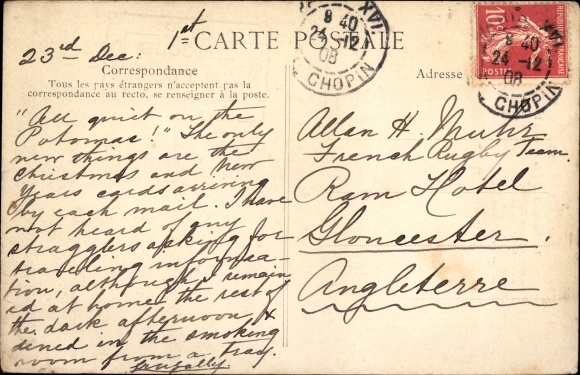 23rd Dec: 1st
CARTE POSTALE
Correspondance
Tous les pays étrangers n'acceptent pas la
correspondance au recto, se renseigner à la poste.
"All quiet on the
Potomac!" The only
new things are the
Christmas and New
Years cards arriving
by each mail. I have
not heard of any
stragglers asking for
traveling informa-
tion, although I remain
ed at home the rest of
the dark afternoon, &
dined in the smoking
room from a tray.
frugally
Adresse
Allan H. Muhr
French Rugby Team.
Ram Hotel
Gloucester,
Angleterre
8 40
24 -12
08
CHOPIN
XVI
10c
POSTES
8 40
24 -12
08
CHOPIN